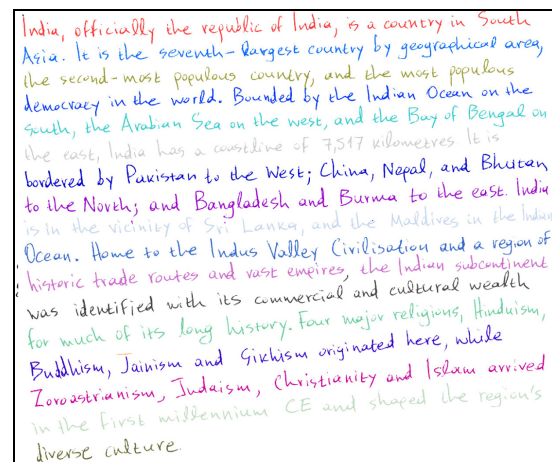 India, officially the republic of India, is a country in South
Asia. It is the seventh-largest country by geographical area,
the second-most populous country, and the most populous
democracy in the world. Bounded by the Indian Ocean on the
south, the Arabian Sea on the west, and the Bay of Bengal on
the east, India has a coastline of 7,517 kilometres It is
bordered by Pakistan to the West; China, Nepal, and Bhutan
to the North; and Bangladesh and Burma to the east. India
is in the vicinity of Sri Lanka, and the Maldives in the Indian
Ocean. Home to the Indus Valley Civilisation and a region of
historic trade routes and vast empires, the Indian subcontinent
was identified with its commercial and cultural wealth
for much of its long history. Four major religions, Hinduism,
Buddhism, Jainism and Sikhism originated here, while
Zoroastrianism, Judaism, Christianity and Islam arrived
in the first millennium CE and shaped the region's
diverse culture.